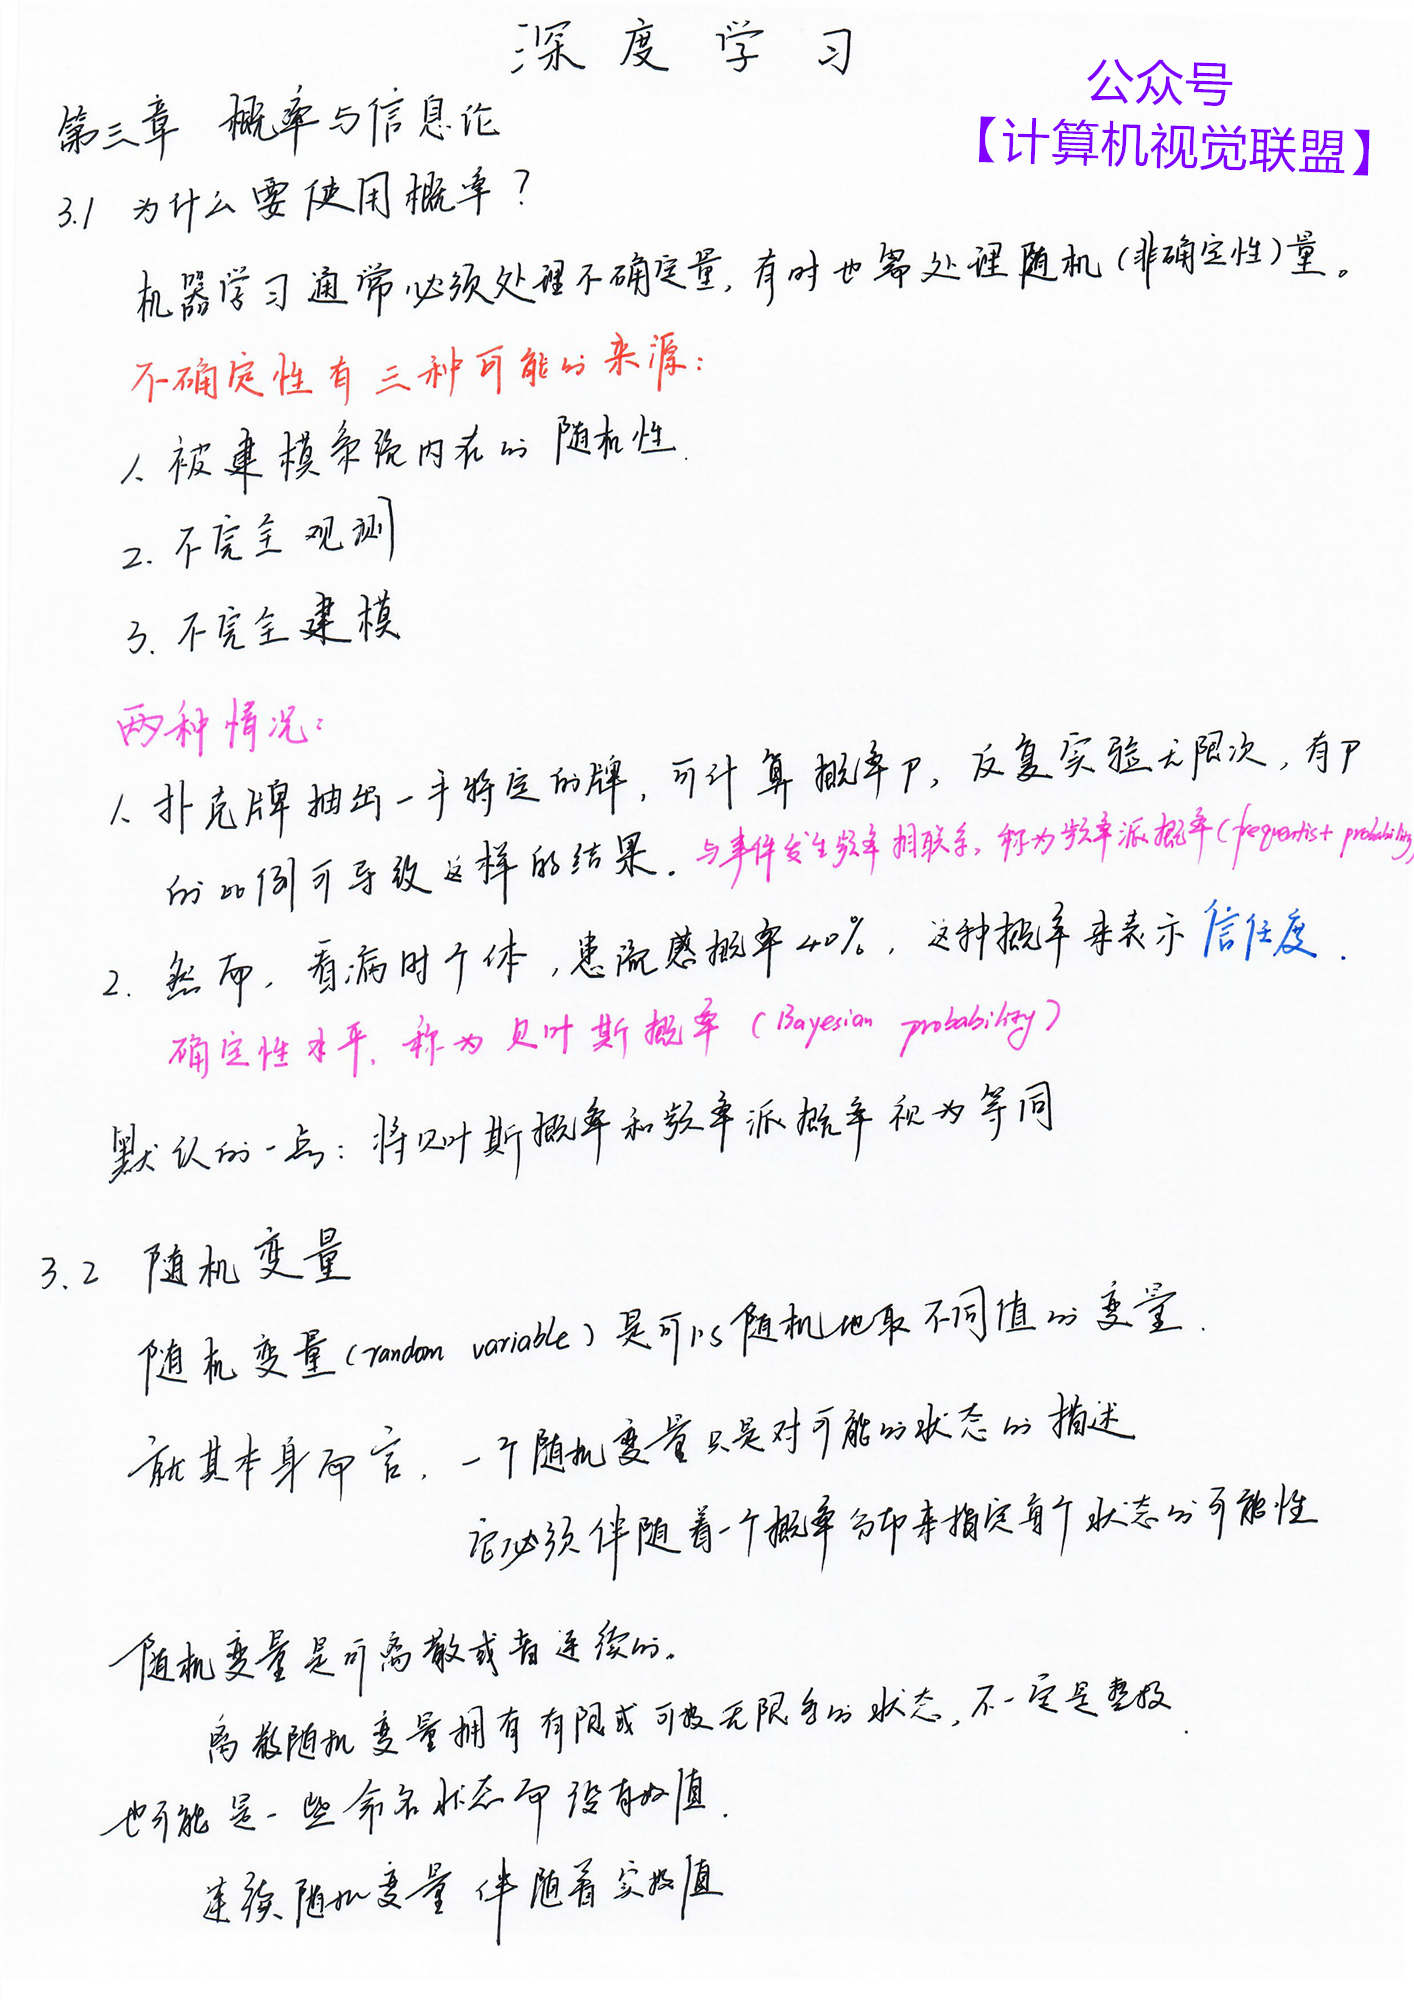 深度学习
公众号
【计算机视觉联盟】
第三章 概率与信息论
3.1 为什么要使用概率？
机器学习通常必须处理不确定量，有时也需处理随机(非确定性)量。
不确定性有三种可能的来源：
1. 被建模系统内在的随机性.
2. 不完全观测
3. 不完全建模
两种情况：
1. 扑克牌抽出一手特定的牌，可计算概率P，反复实验无限次，有P
的比例可导致这样的结果。与事件发生频率相联系，称为频率派概率(frequentist probability)
2. 然而，看病时个体，患流感概率40%，这种概率来表示信任度.
确定性水平，称为贝叶斯概率(Bayesian probability)
默认的一点：将贝叶斯概率和频率派概率视为等同
3.2 随机变量
随机变量(random variable)是可以随机地取不同值的变量.
就其本身而言，一个随机变量只是对可能的状态的描述
它必须伴随着一个概率分布来指定每个状态的可能性
随机变量是可离散或者连续的。
离散随机变量拥有有限或可数无限多的状态，不一定是整数.
也可能是一些命名状态而没有数值.
连续随机变量伴随着实数值